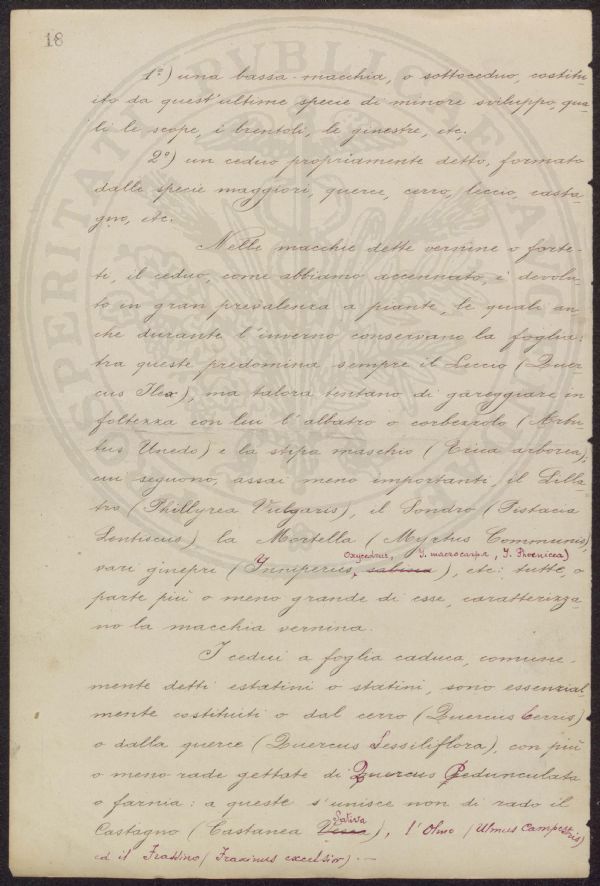 18
1º) una bassa macchia, o sottoceduo, costitu-
ito da quest'ultime specie di minore sviluppo, qua-
li le scope, i brentoli, le ginestre, etc.
2º) un ceduo propriamente detto, formato
dalle specie maggiori, querce, cerro, leccio, casta-
gno, etc.
Nelle macchie dette vernine o forte-
ti, il ceduo, come abbiamo accennato, è devolu-
to in gran prevalenza a piante, le quali an
che durante l'inverno conservano la foglia:
tra queste predomina sempre il Leccio (Quer-
cus Ilex), ma talora tentano di gareggiare in
foltezza con lui l'albatro o corbezzolo (Arbu
tus Unedo) e la stipa maschio (Erica arborea),
cui seguono, assai meno importanti, il Lilla-
tro (Phillyrea Vulgaris), il Sondro (Pistacia
Lentiscus), la Mortella (Myrtus Communis),
Oxycedrus, J. macrocarpa, J. Phoenicea)
vari ginepri (Juniperius, sabina), etc: tutte, o
parte più o meno grande di esse, caratterizza-
no la macchia vernina.
I cedui a foglia caduca, comune-
mente detti estatini o statini, sono essenzial
mente costituiti o dal cerro (Quercus Cerris)
o dalla querce (Quercus Sessiliflora), con più
o meno rade gettate di Quercus Pedunculata
o farnia: a queste s'unisce non di rado il
Sativa
Castagno (Castanea Vesca), l'Olmo (Ulmus Campestris)
ed il Frassino (Fraxinus excelsior). —